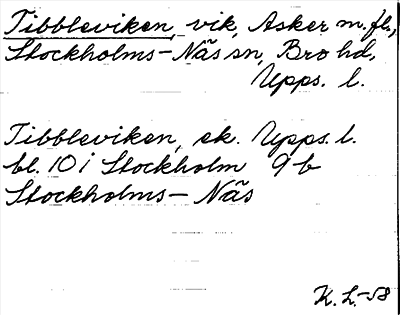 Tibbleviken, vik, Asker m.fl.,
Stockholms-Näs sn, Bro hd,
Upps. l.
Tibbleviken, ek. Upps. l.
bl. 10 i Stockholm 9 b
Stockholms-Näs
K. L. -58